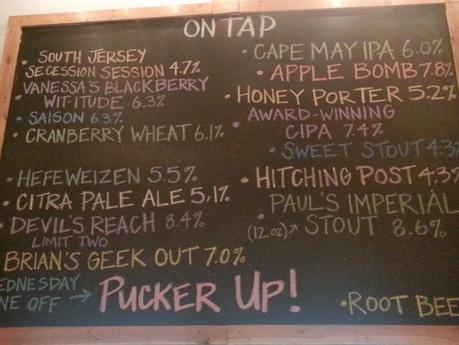 ON TAP
• SOUTH JERSEY
SECESSION SESSION 4.7%
VANESSA'S BLACKBERRY
WIT-ITUDE 6.3%
• SAISON 6.3%
• CRANBERRY WHEAT 6.1%
• HEFEWEIZEN 5.5%
• CITRA PALE ALE 5.1%
• DEVIL'S REACH 8.4%
LIMIT TWO
BRIAN'S GEEK OUT 7.0%
EDNESDAY
NE OFF → PUCKER UP!
• CAPE MAY IPA 6.0%
• APPLE BOMB 7.8%
• HONEY PORTER 5.2%
• AWARD-WINNING
CIPA 7.4%
• SWEET STOUT 4.3%
• HITCHING POST 4.3%
• PAUL'S IMPERIAL
(12oz)↗ STOUT 8.6%
• ROOT BEE